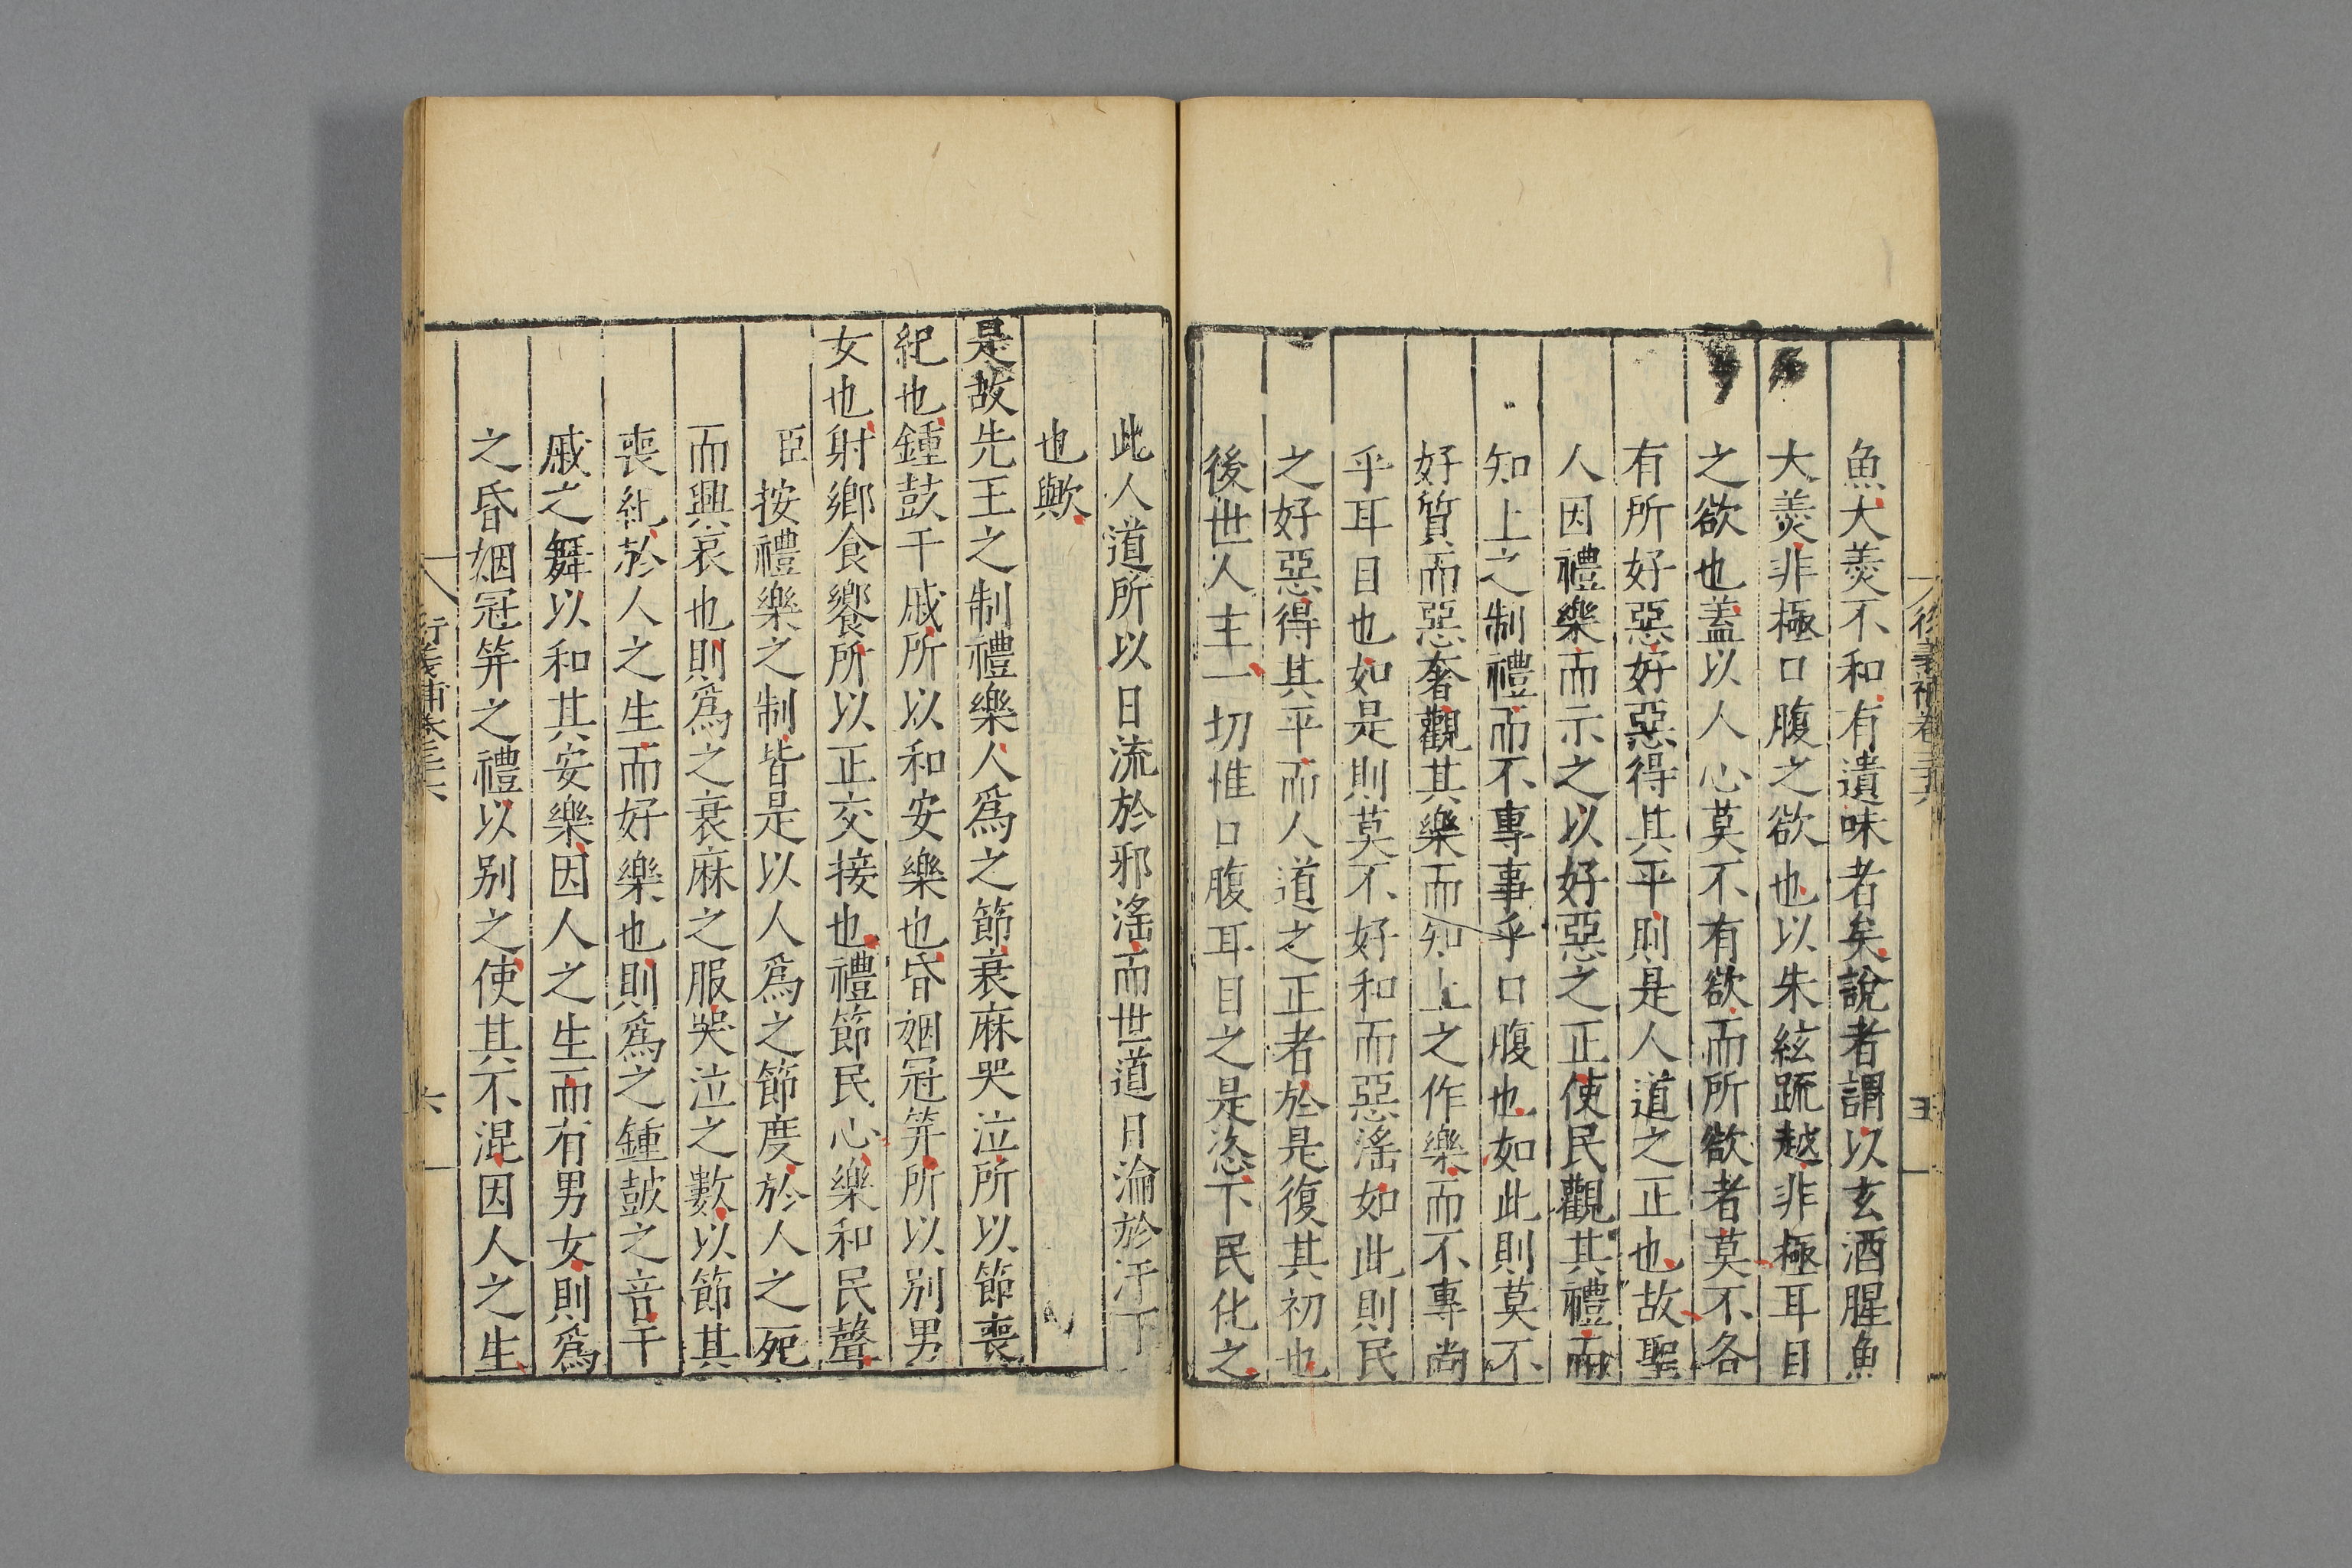 魚大羹不和有遺味者矣說者謂以玄酒腥魚
大羹非極口腹之欲也以朱絃䟽越非極耳目
之欲也葢以人心莫不有欲而所欲者莫不各
有所好惡好惡得其平則是人道之正也故聖
人因禮樂而示之以好惡之正使民觀其禮而
知上之制禮而不專事乎口腹也如此則莫不
好質而惡奢觀其樂而知上之作樂而不專尚
乎耳目也如是則莫不好和而惡滛如此則民
之好惡得其平而人道之正者於是復其初也
後世人主一切惟口腹耳目之是恣下民化之
此人道所以日流於邪滛而世道日淪於汙下
也歟
是故先王之制禮樂人爲之節衰麻哭泣所以節喪
紀也鍾鼓干戚所以和安樂也昏姻冠笄所以别男
女也射鄉食饗所以正交接也禮節民心樂和民聲
臣按禮樂之制皆是以人爲之節度於人之死
而興哀也則爲之衰麻之服哭泣之數以節其
喪紀於人之生而好樂也則爲之鍾鼓之音干
戚之舞以和其安樂因人之生而有男女則爲
之昏姻冠笄之禮以别之使其不混因人之生
衍義補卷三十六
六